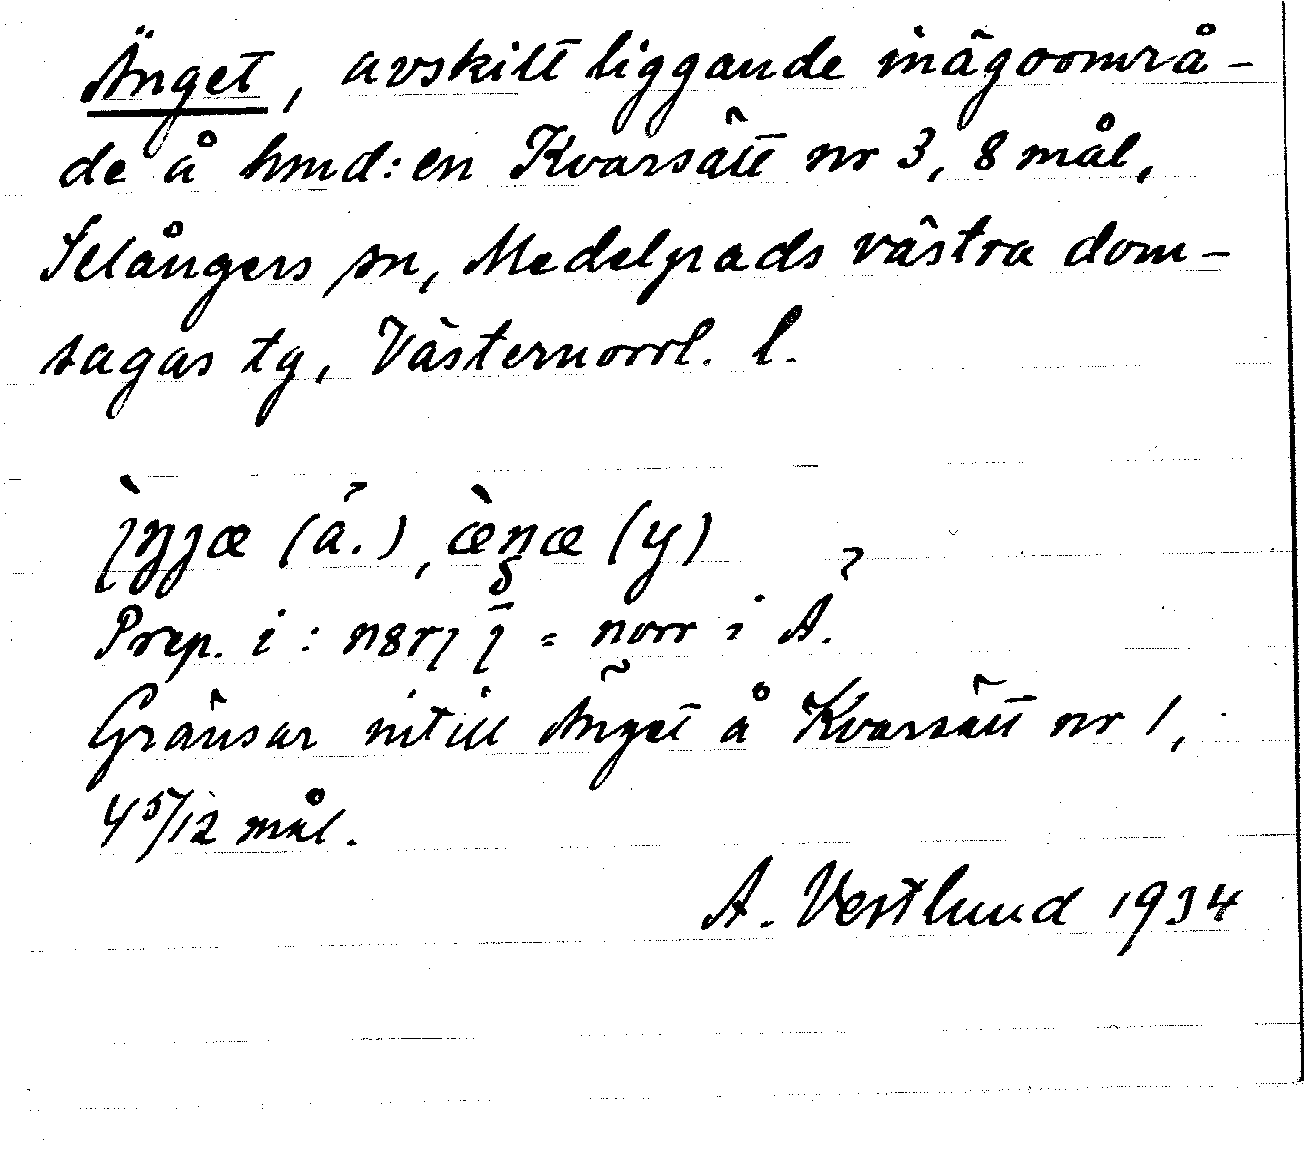 Änget, avskilt liggande inägoområ-
de å hmd: en Kvarsätt nr 3, 8 mål,
Selångers sn, Medelpads västra dom-
sagas tg, Västernorrl. l.
(ä.), (y)
Prep. i : = norr i Ä.
Gränsar intill Änget å Kvarsätt nr 1,
4 5/12 mål.
A. Vestlund 1934